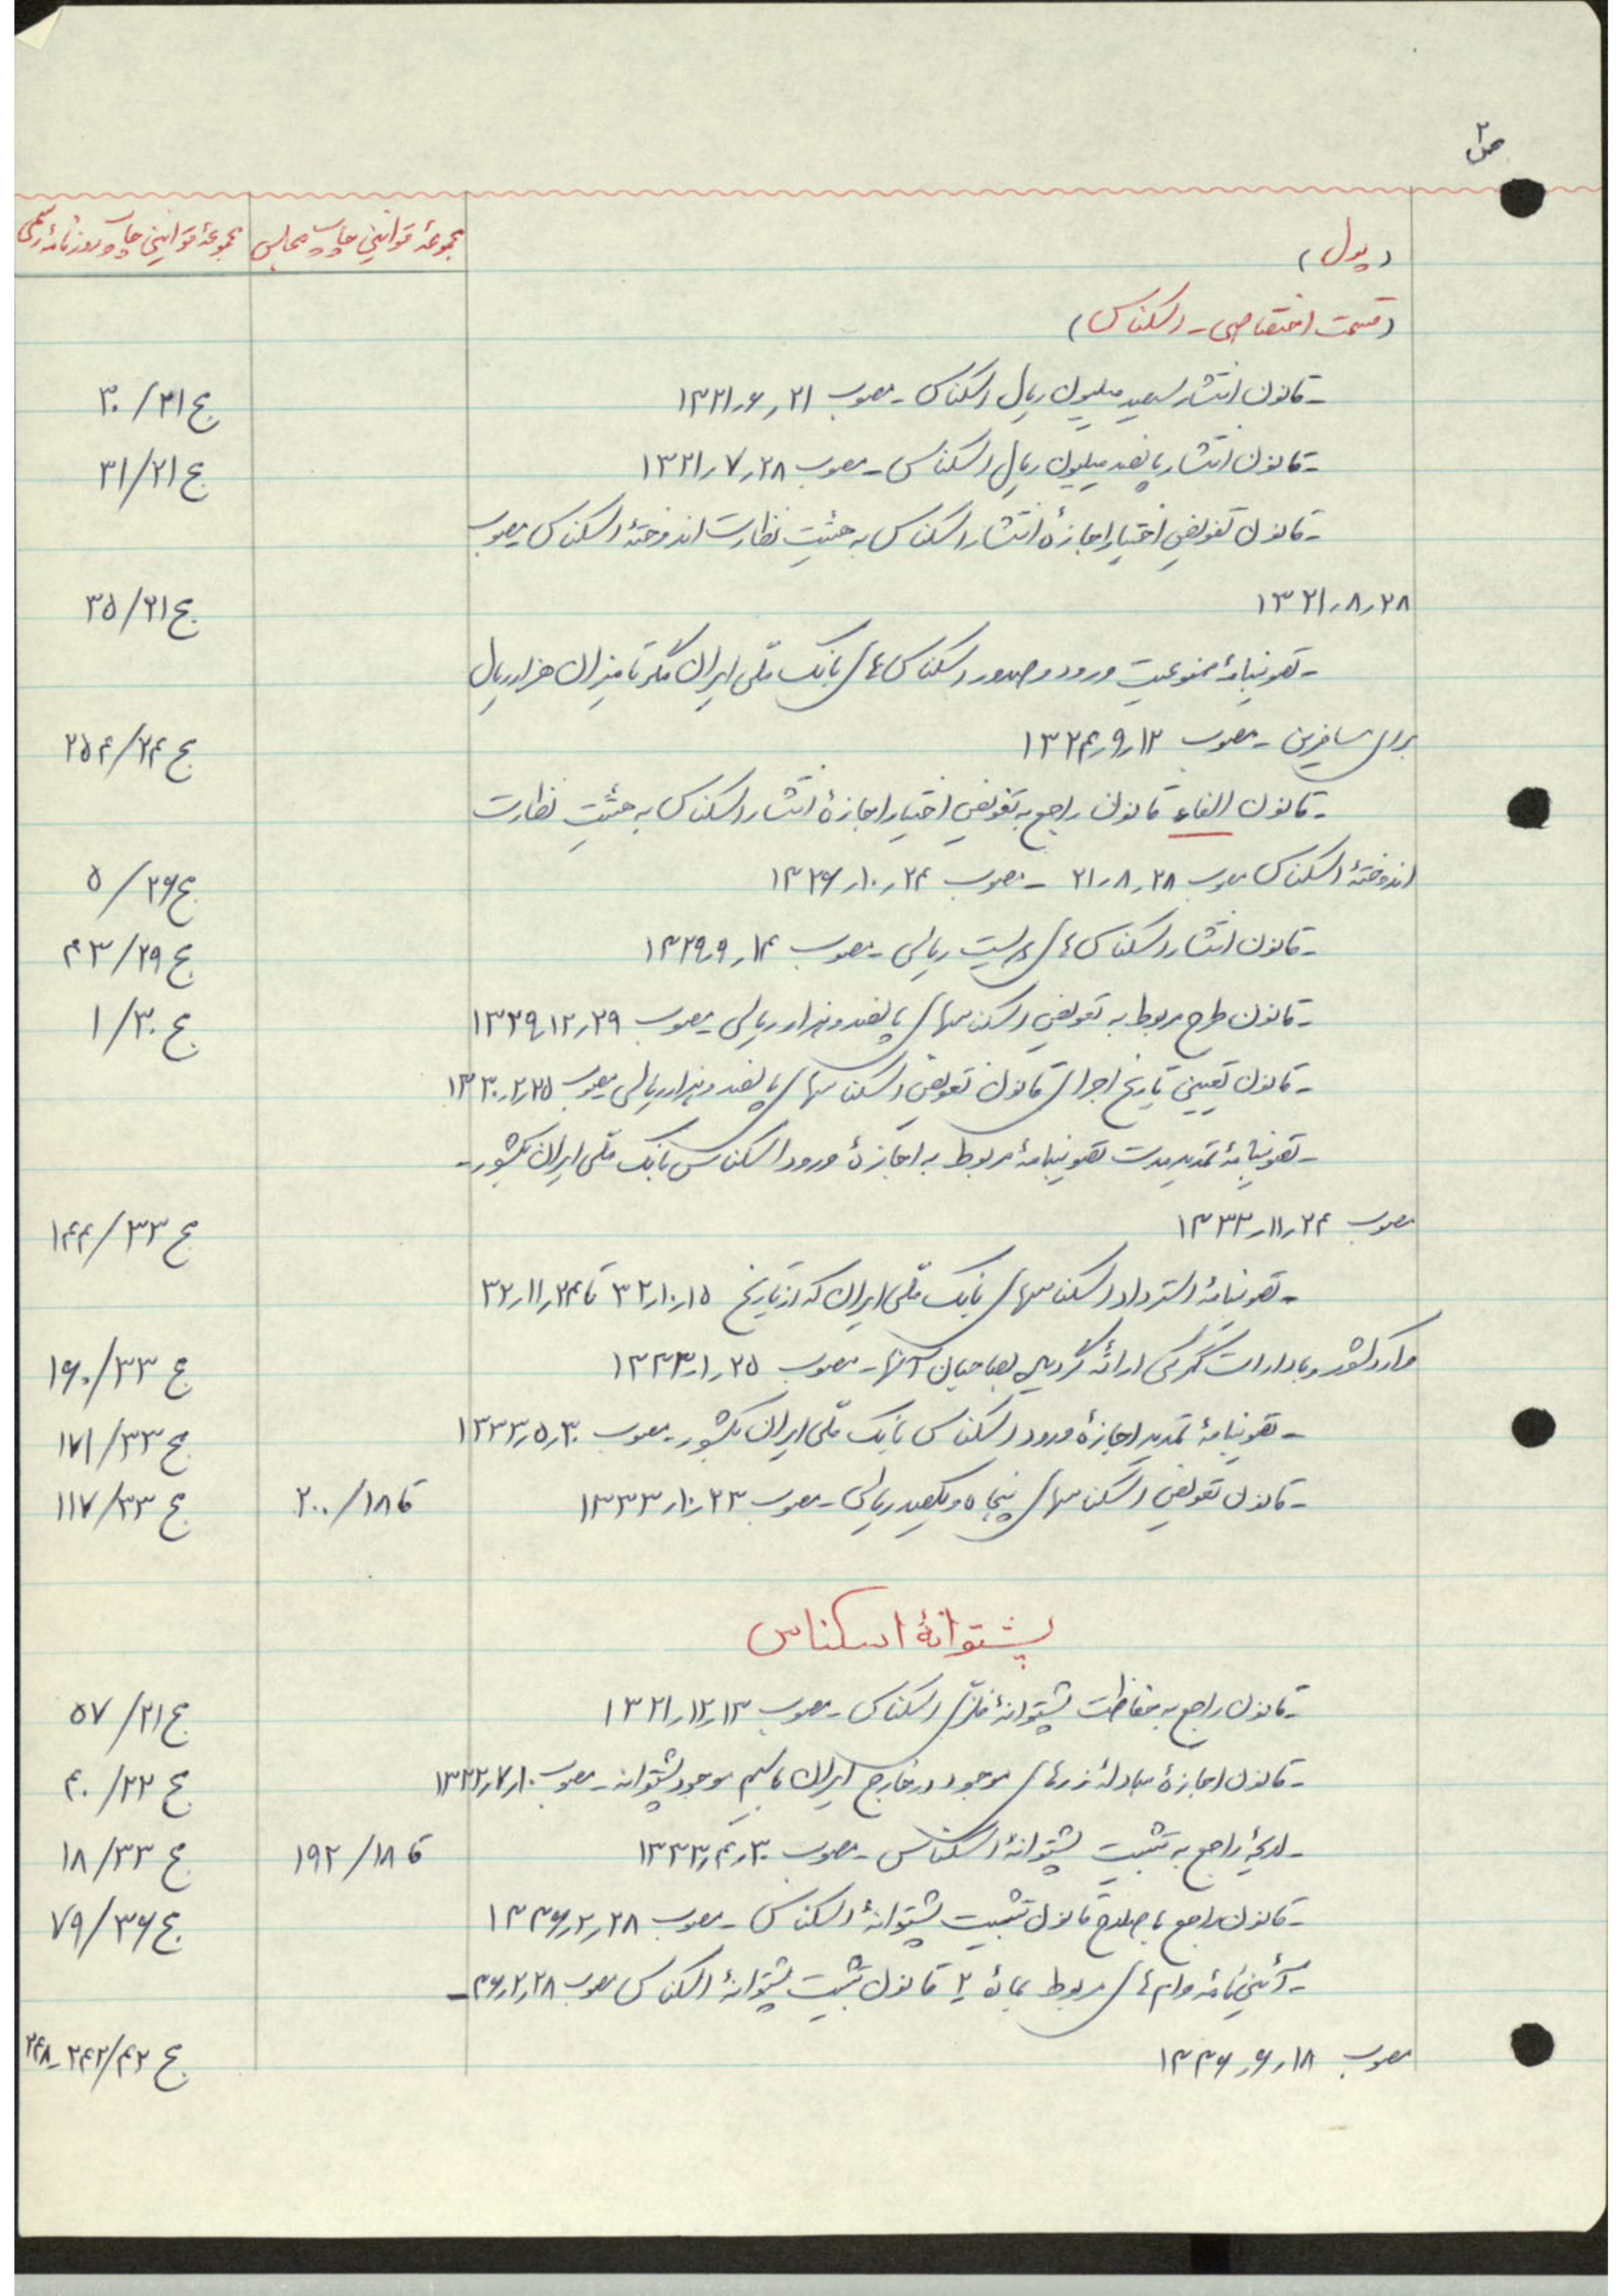 ص ۲
(پول)	مجموعهٔ قوانین چاپ مجلس	مجموعهٔ قوانین چاپ روزنامهٔ رسمی
(قسمت اختصاصی - اسکناس)
- قانون انتشار سیصد میلیون ریال اسکناس - مصوب ۲۱ر۶ر۱۳۲۱	ج ۲۱/۳۰
- قانون انتشار پانصد میلیون ریال اسکناس - مصوب ۲۸ر۷ر۱۳۲۱	ج ۲۱/۳۱
- قانون تفویض اختیار اجازهٔ انتشار اسکناس به هیئت نظارت اندوختهٔ اسکناس مصوب
۲۸ر۸ر۱۳۲۱	ج ۲۱/۳۵
- تصویبنامهٔ ممنوعیت ورود و صدور اسکناس‌های بانک ملّی ایران مگر تا میزان هزار ریال
برای مسافرین - مصوب ۱۲ر۹ر۱۳۲۴	ج ۲۴/۲۵۴
- قانون الغاء قانون راجع به تفویض اختیار اجازهٔ انتشار اسکناس به هیئت نظارت
اندوختهٔ اسکناس مصوب ۲۸ر۸ر۲۱ - مصوب ۲۴ر۱۰ر۱۳۲۶	ج ۲۶/۵
- قانون انتشار اسکناس‌های دویست ریالی - مصوب ۱۴ر۹ر۱۳۲۹	ج ۲۹/۴۳
- قانون طرح مربوط به تعویض اسکناسهای پانصد و هزار ریالی مصوب ۲۹ر۱۲ر۱۳۲۹	ج ۳۰/۱
- قانون تعیین تاریخ اجرای قانون تعویض اسکناسهای پانصد و هزار ریالی مصوب ۲۵ر۲ر۱۳۳۰
- تصویبنامهٔ تمدید مدت تصویبنامهٔ مربوط به اجازهٔ ورود اسکناس بانک ملّی ایران بکشور -
مصوب ۲۴ر۱۱ر۱۳۳۲	ج ۳۳/۱۴۴
- تصویبنامهٔ استرداد اسکناسهای بانک ملّی ایران که از تاریخ ۱۵ر۱۰ر۳۲ تا ۲۴ر۱۱ر۳۲
وارد کشور و بادارات گمرکی ارائه گردیده بصاحبان آنها - مصوب ۲۵ر۱ر۱۳۳۳	ج ۳۳/۱۶۰
- تصویبنامهٔ تمدید اجازهٔ ورود اسکناس بانک ملّی ایران بکشور - مصوب ۳۰ر۵ر۱۳۳۳	ج ۳۳/۱۷۱
- قانون تعویض اسکناسهای پنجاه و یکصد ریالی - مصوب ۲۳ر۱۰ر۱۳۳۳	قا ۱۸/۲۰۰	ج ۳۳/۱۱۷
پشتوانهٔ اسکناس
- قانون راجع به حفاظت پشتوانهٔ فلزی اسکناس - مصوب ۱۳ر۱۲ر۱۳۲۱	ج ۲۱/۵۷
- قانون اجازهٔ مبادلهٔ زرهای موجود در خارج ایران با سیم موجود پشتوانه - مصوب ۱۰ر۷ر۱۳۲۲	ج ۲۲/۴۰
- لایحهٔ راجع به تثبیت پشتوانهٔ اسکناس - مصوب ۳۰ر۴ر۱۳۳۳	قا ۱۸/۱۹۲	ج ۳۳/۱۸
- قانون راجع باصلاح قانون تثبیت پشتوانهٔ اسکناس - مصوب ۲۸ر۲ر۱۳۳۶	ج ۳۶/۷۹
- آئین‌نامهٔ وام‌های مربوط بمادهٔ ۲ قانون تثبیت پشتوانهٔ اسکناس مصوب ۲۸ر۲ر۳۶ -
مصوب ۱۸ر۶ر۱۳۳۶	ج ۴۲/۲۴۲-۲۴۸